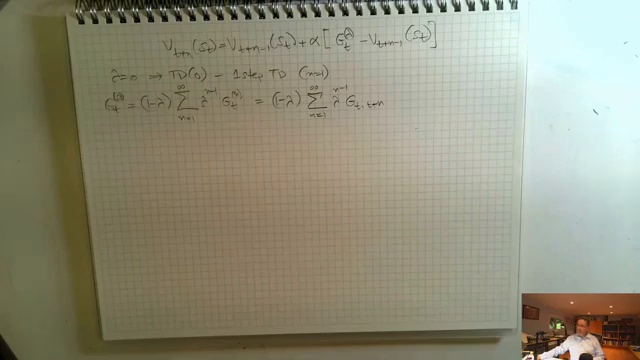 V_{t+n}(S_t) = V_{t+n-1}(S_t) + α [ G_t^{(λ)} − V_{t+n-1}(S_t) ]
λ=0 ⟹ TD(0) – 1 step TD (n=1)
G_t^{(λ)} = (1-λ) ∑_{n=1}^{∞} λ^{n-1} G_t^{(n)} = (1-λ) ∑_{n=1}^{∞} λ^{n-1} G_{t,t+n}